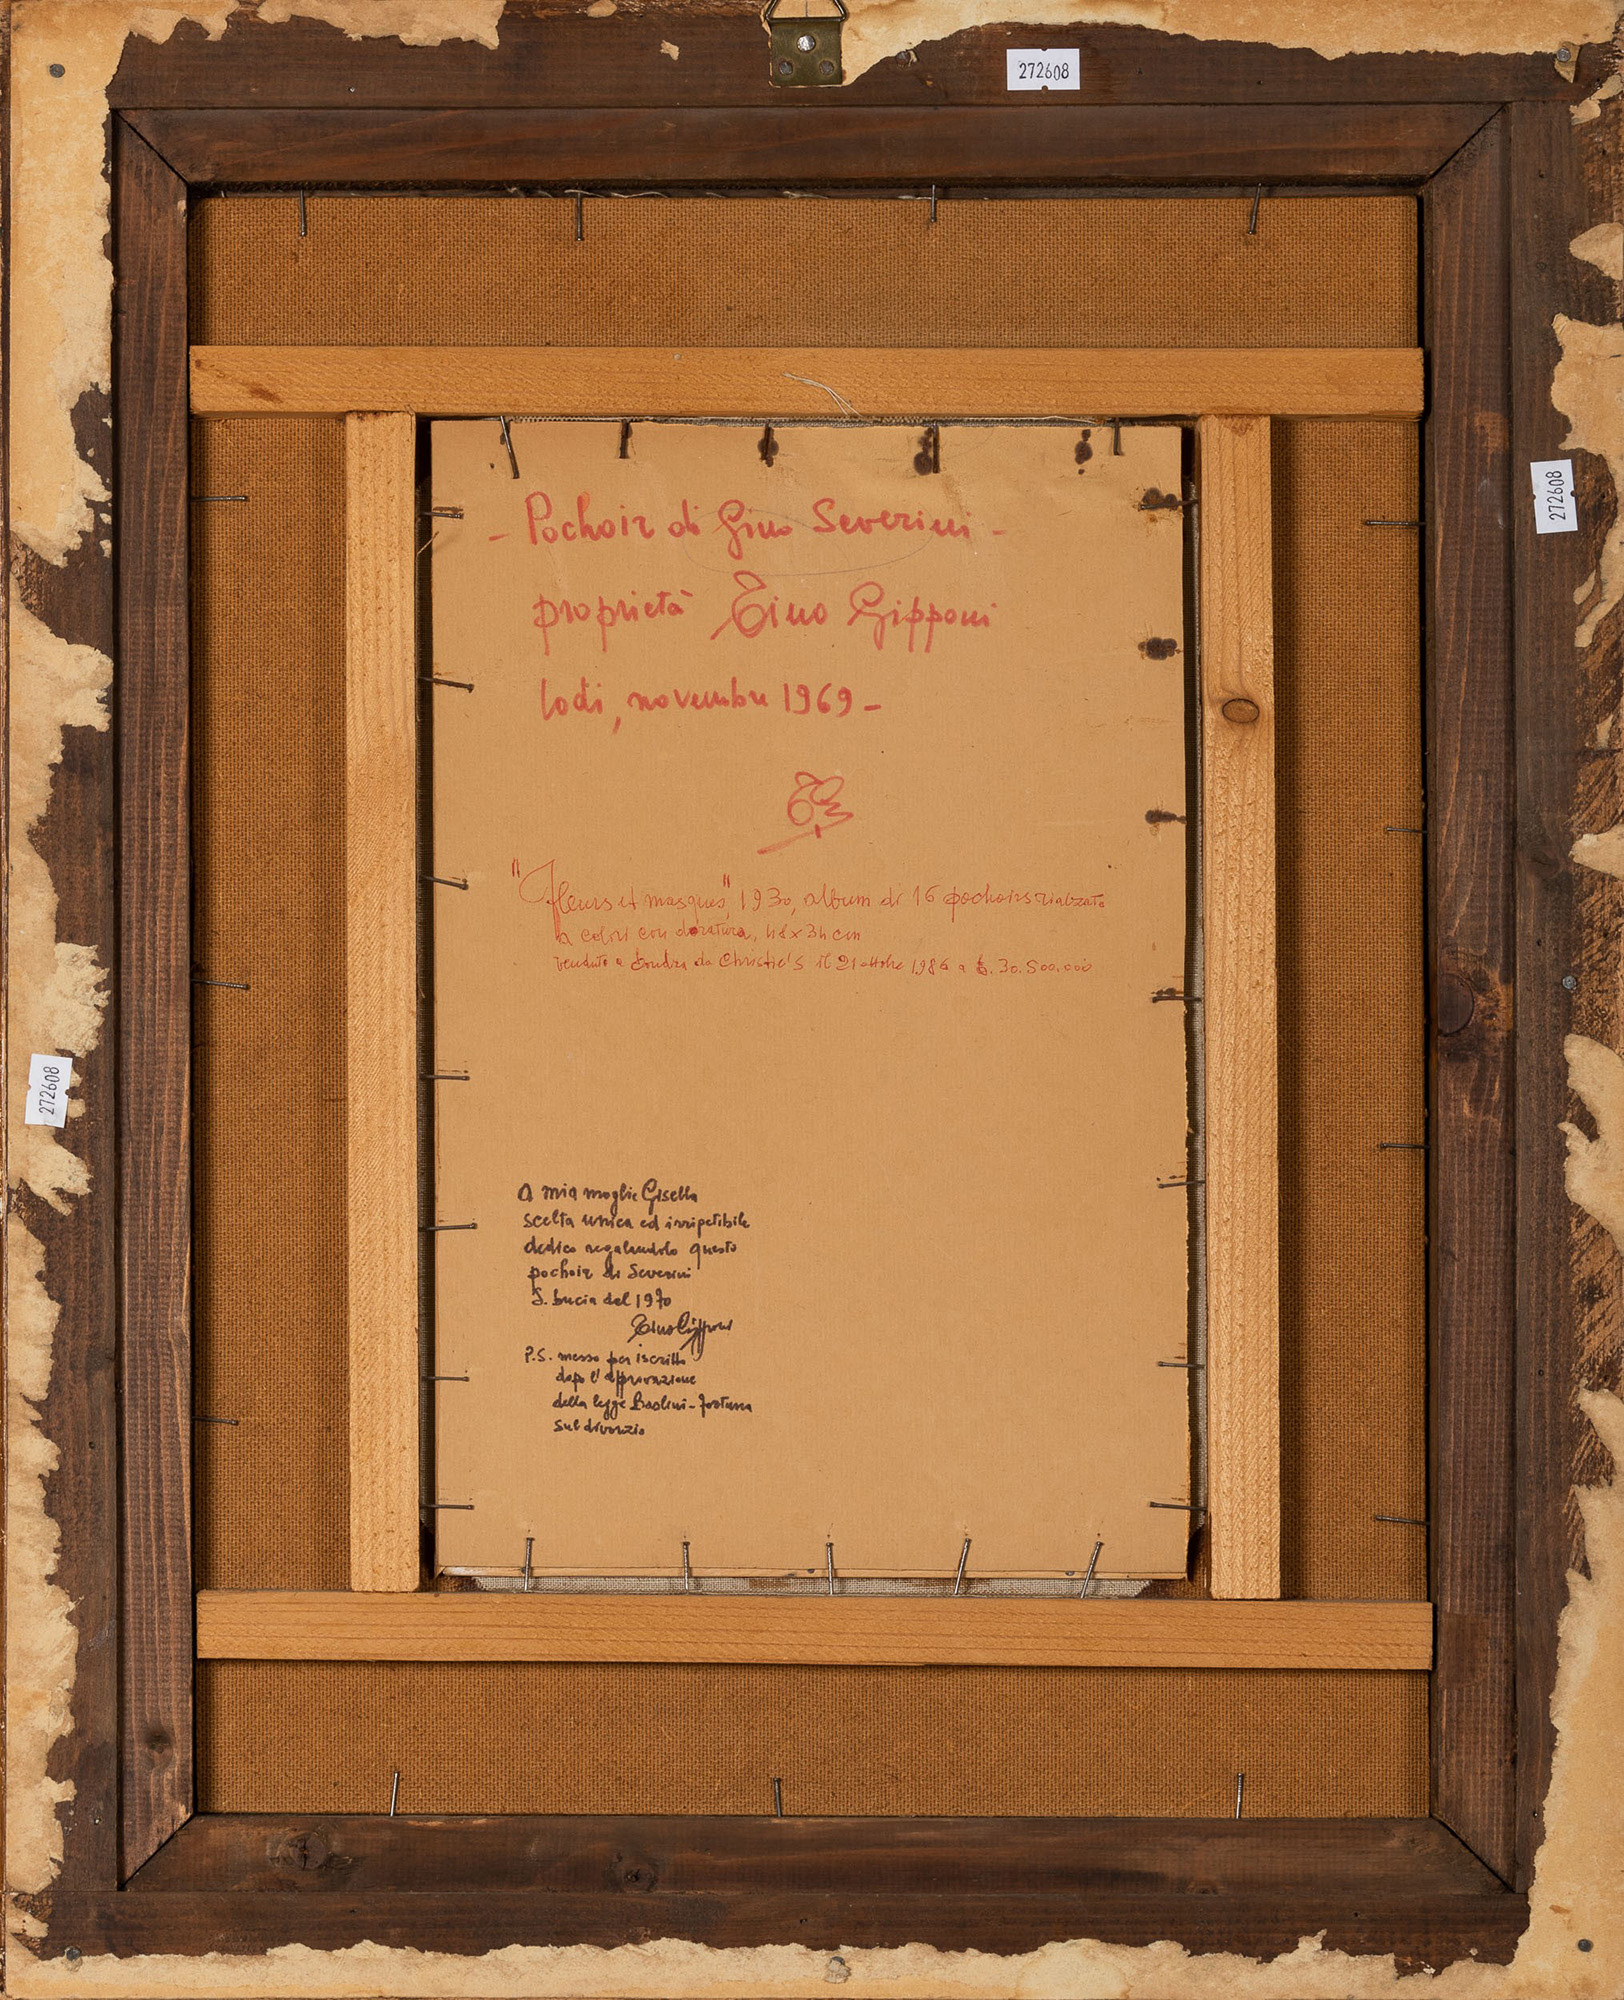 272608
272608
- Pochoir di Gino Severini -
proprietà Tino Gipponi
lodi, novembre 1969 -
"Fleurs et masques", 1930, album di 16 pochoirs rialzato
a colori con doratura, 48 x 34 cm
venduto a Londra da Christie's il 21 ottobre 1986 a £. 30.500.000
272608
A mia moglie Gisella
scelta unica ed irripetibile
dedico regalandolo questo
pochoir di Severini
S. Lucia del 1970
Tino Gipponi
P.S. messo per iscritto
dopo l'approvazione
della legge Baslini-Fortuna
sul divorzio